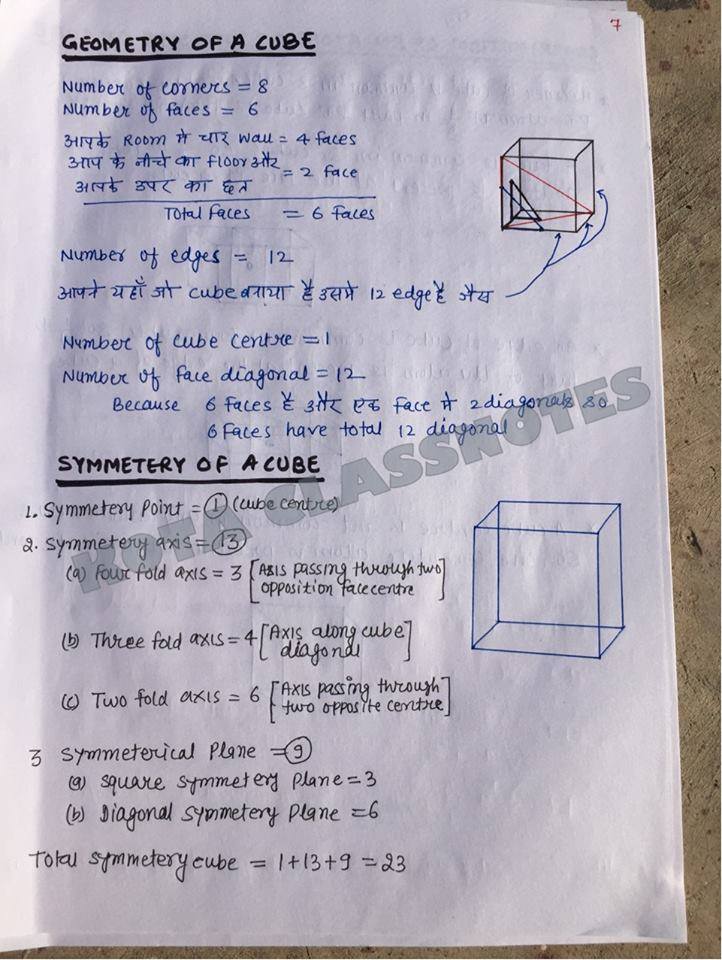 7
GEOMETRY OF A CUBE
Number of corners = 8
Number of faces = 6
आपके Room मे चार wall = 4 faces
आप के नीचे का floor और
आपके उपर का छत = 2 face
Total Faces = 6 Faces
Number of edges = 12
आपने यहाँ जो cube बनाया है उसमे 12 edge है जैसे
Number of cube centre = 1
Number of face diagonal = 12
Because 6 faces है और एक Face मे 2 diagonals so
6 Faces have total 12 diagonal
KOTA CLASSNOTES
SYMMETERY OF A CUBE
1. Symmetery Point = 1 (cube centre)
2. Symmetery axis = 13
(a) Four fold axis = 3 [Axis passing through two
opposition face centre]
(b) Three fold axis = 4 [Axis along cube
diagonal]
(c) Two fold axis = 6 [Axis passing through
two opposite centre]
3 Symmeterical Plane = 9
(a) square symmetery plane = 3
(b) Diagonal symmetery Plane = 6
Total symmetery cube = 1+13+9 = 23